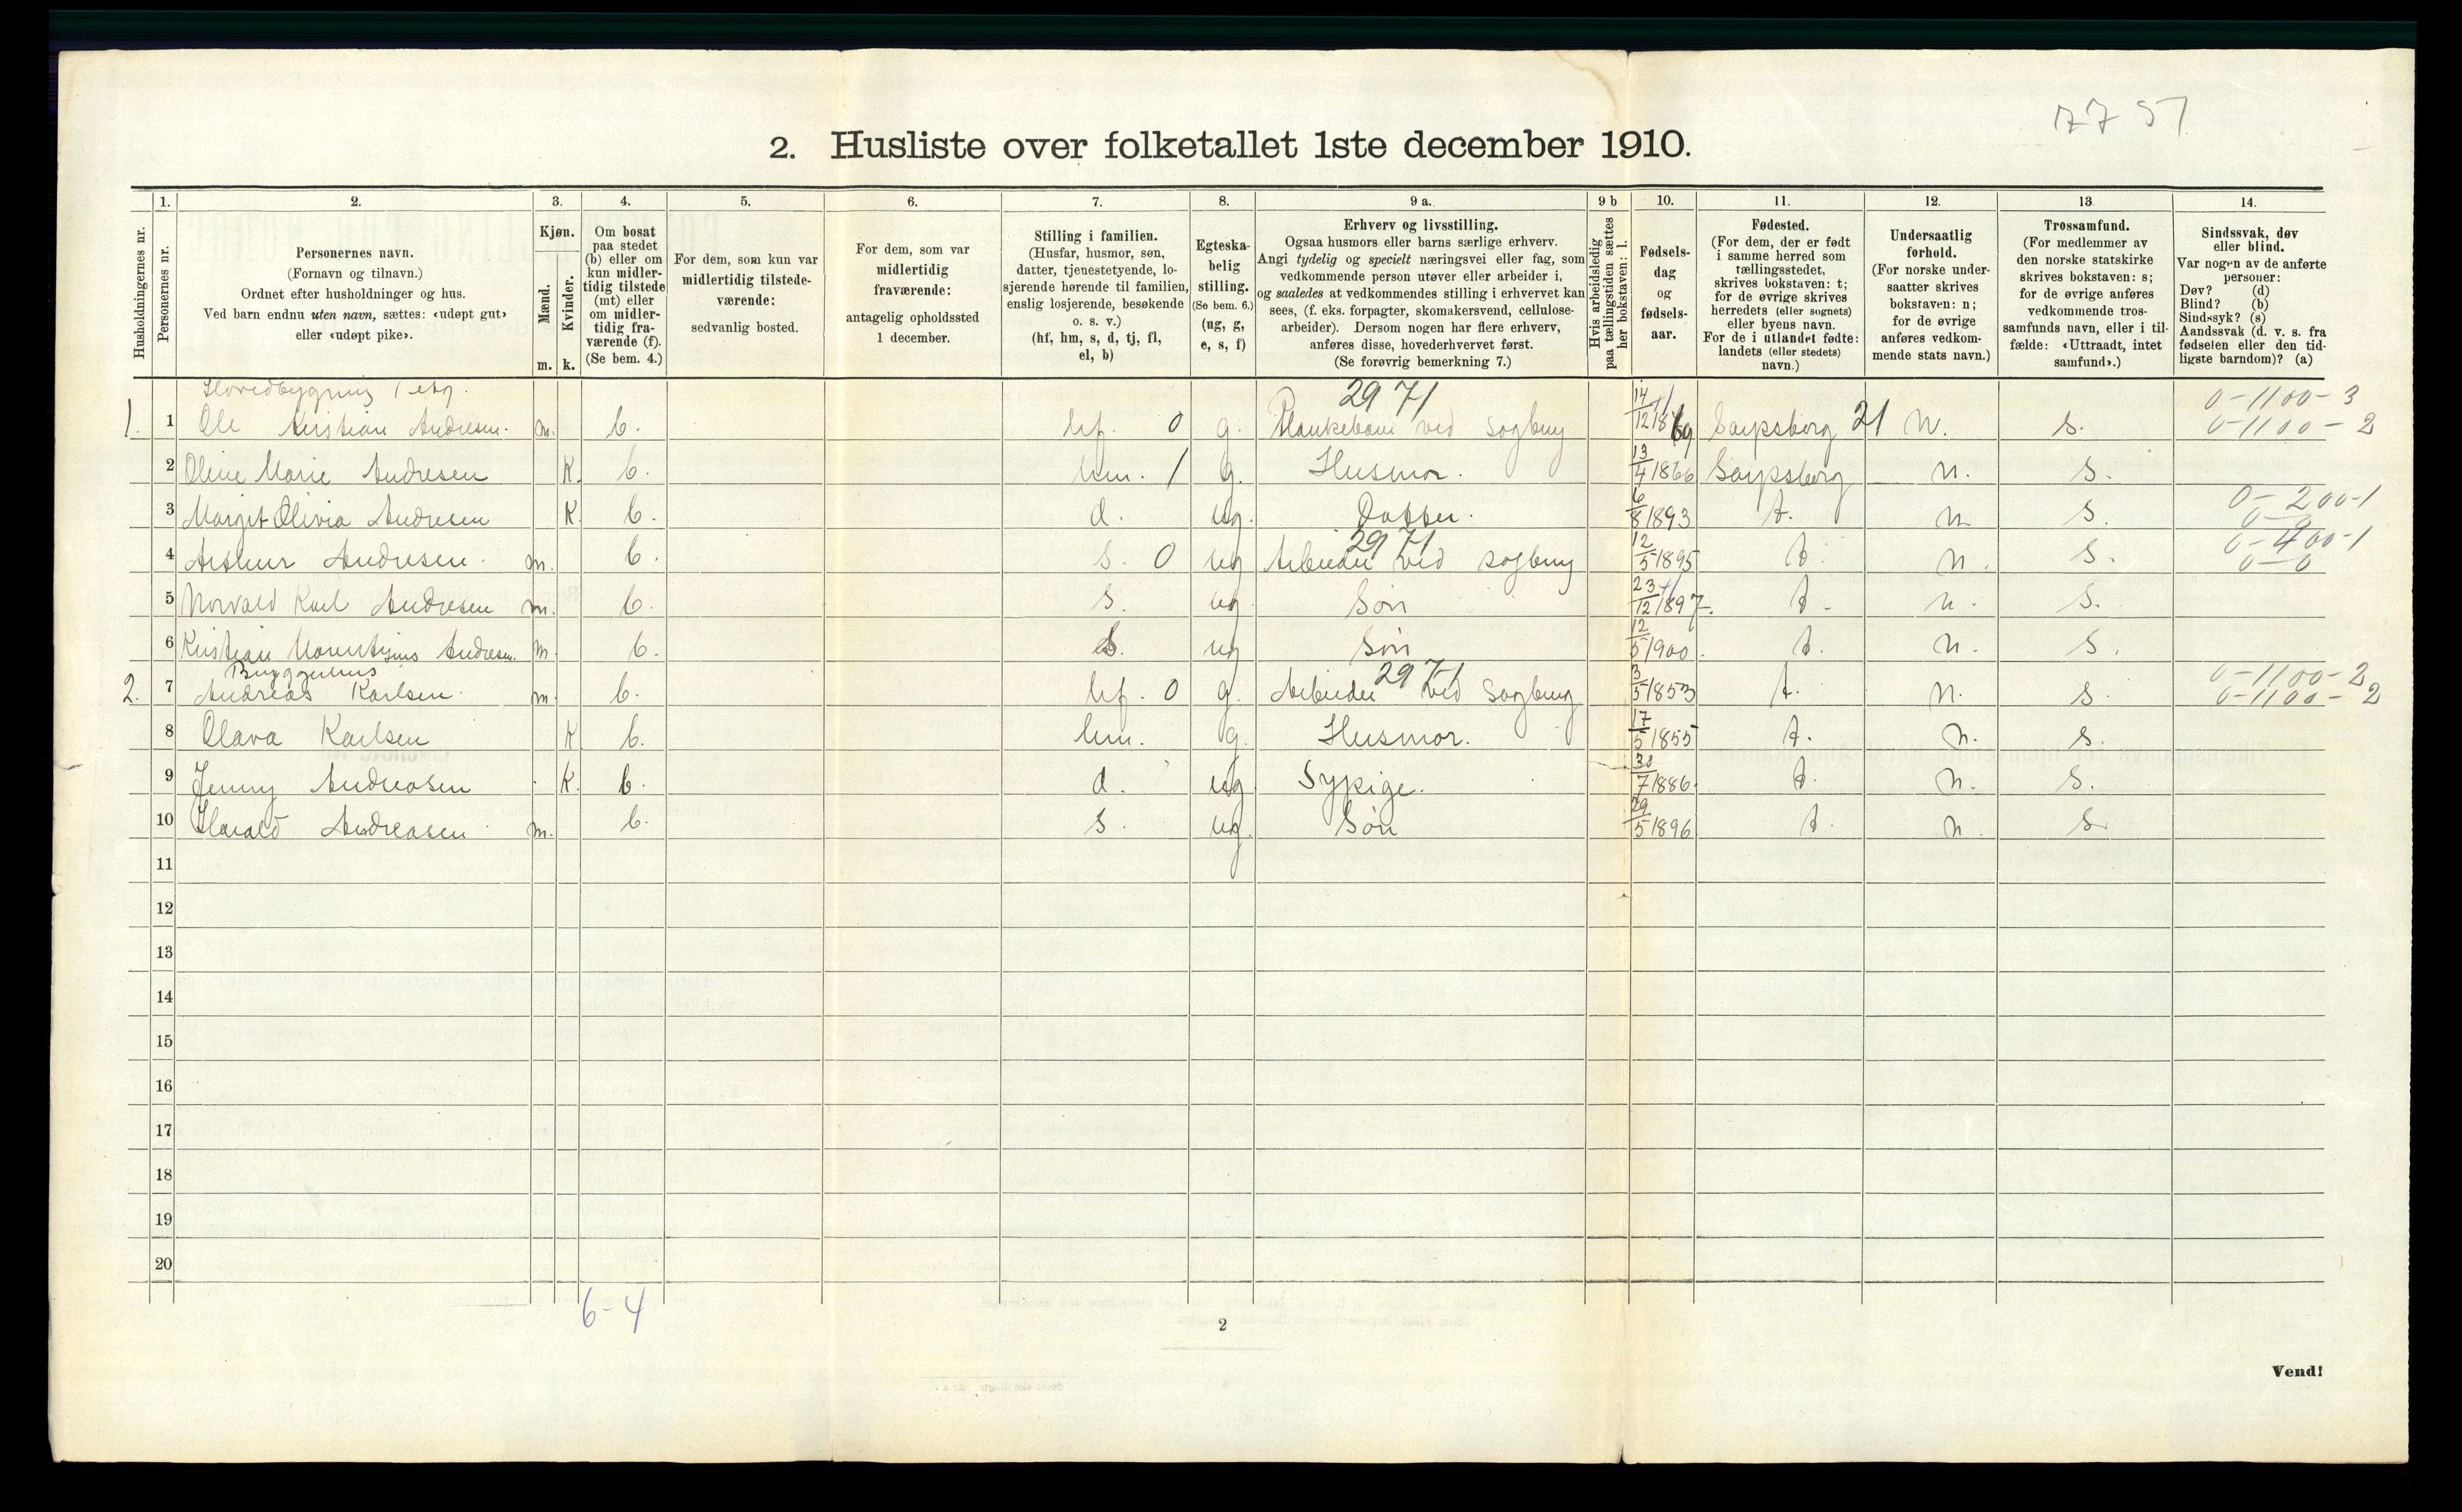 77 57
2. Husliste over folketallet 1ste december 1910.
Husholdningernes nr.
1.
Personernes nr.
2.
Personernes navn.
(Fornavn og tilnavn.)
Ordnet efter husholdninger og hus.
Ved barn endnu uten navn, sættes: «udøpt gut»
eller «udøpt pike».
3.
Kjøn.
Mænd.
Kvinder.
m. k.
4.
Om bosat
paa stedet
(b) eller om
kun midler-
tidig tilstede
(mt) eller
om midler-
tidig fra-
værende (f).
(Se bem. 4.)
5.
For dem, som kun var
midlertidig tilstede-
værende:
sedvanlig bosted.
6.
For dem, som var
midlertidig
fraværende:
antagelig opholdssted
1 december.
7.
Stilling i familien.
(Husfar, husmor, søn,
datter, tjenestetyende, lo-
sjerende hørende til familien,
enslig losjerende, besøkende
o. s. v.)
(hf, hm, s, d, tj, fl,
el, b)
8.
Egteska-
belig
stilling.
(Se bem. 6.)
(ug, g,
e, s, f)
9 a.
Erhverv og livsstilling.
Ogsaa husmors eller barns særlige erhverv.
Angi tydelig og specielt næringsvei eller fag, som
vedkommende person utøver eller arbeider i,
og saaledes at vedkommendes stilling i erhvervet kan
sees, (f. eks. forpagter, skomakersvend, cellulose-
arbeider). Dersom nogen har flere erhverv,
anføres disse, hovederhvervet først.
(Se forøvrig bemerkning 7.)
9 b
Hvis arbeidsledig
paa tællingstiden sættes
her bokstaven: l.
10.
Fødsels-
dag
og
fødsels-
aar.
11.
Fødested.
(For dem, der er født
i samme herred som
tællingsstedet,
skrives bokstaven: t;
for de øvrige skrives
herredets (eller sognets)
eller byens navn.
For de i utlandet fødte:
landets (eller stedets)
navn.)
12.
Undersaatlig
forhold.
(For norske under-
saatter skrives
bokstaven: n;
for de øvrige
anføres vedkom-
mende stats navn.)
13
Trossamfund.
(For medlemmer av
den norske statskirke
skrives bokstaven: s;
for de øvrige anføres
vedkommende tros-
samfunds navn, eller i til-
fælde: «Uttraadt, intet
samfund».)
14.
Sindssvak, døv
eller blind.
Var nogen av de anførte
personer:
Døv? (d)
Blind? (b)
Sindssyk? (s)
Aandssvak (d. v. s. fra
fødselen eller den tid-
ligste barndom)? (a)
Hovedbygning 1 etg. 2971 0-1100-3
1. 1 Ole Kristian Andresen. m. b. hf. 0 g. Plankebær ved sagbrug 14/12 1869 Sarpsborg 21 n. s. 0-1100-2
2 Oline Marie Andresen K. b. hm. 1 g. Husmor. 13/4 1866 Sarpsborg n. s.
3 Margit Olivia Andresen K. b. d. ug. 6/8 1893 t. n s. 0-200-1
4 Arthur Andresen. m. b. s. 0 ug 2971 Arbeider ved sagbrug 12/5 1895 t. n. s. 0-400-1
0-0
5 Norvald Karl Andresen m. b. s. ug Søn 23/12 1897. t. n. s.
6 Kristian Andresen. m. b. s. ug Søn 12/5 1900. t. n. s.
Bryggerhus 2971 0-1100-2
2. 7 Andreas Karlsen. m. b. hf. 0 g. Arbeider ved Sagbrug 3/5 1853 t. n. s. 0-1100-2
8 Olava Karlsen K b. hm. g. Husmor. 17/5 1855 t. n. s.
9 Jenny Andreasen K. b. d. ug Sypige. 30/7 1886. t. n. s.
10 Harald Andreasen m. b. s. ug Søn 29/5 1896 t. n. s
11
12
13
14
15
16
17
18
19
20
6-4
2
Vend!